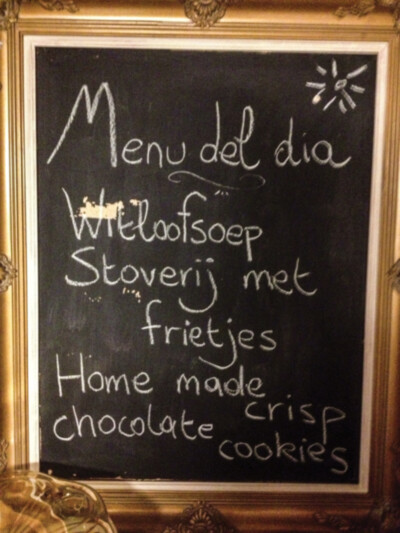 Menu del dia
Witloofsoep
Stoverij met
frietjes
Home made
chocolate crisp
cookies